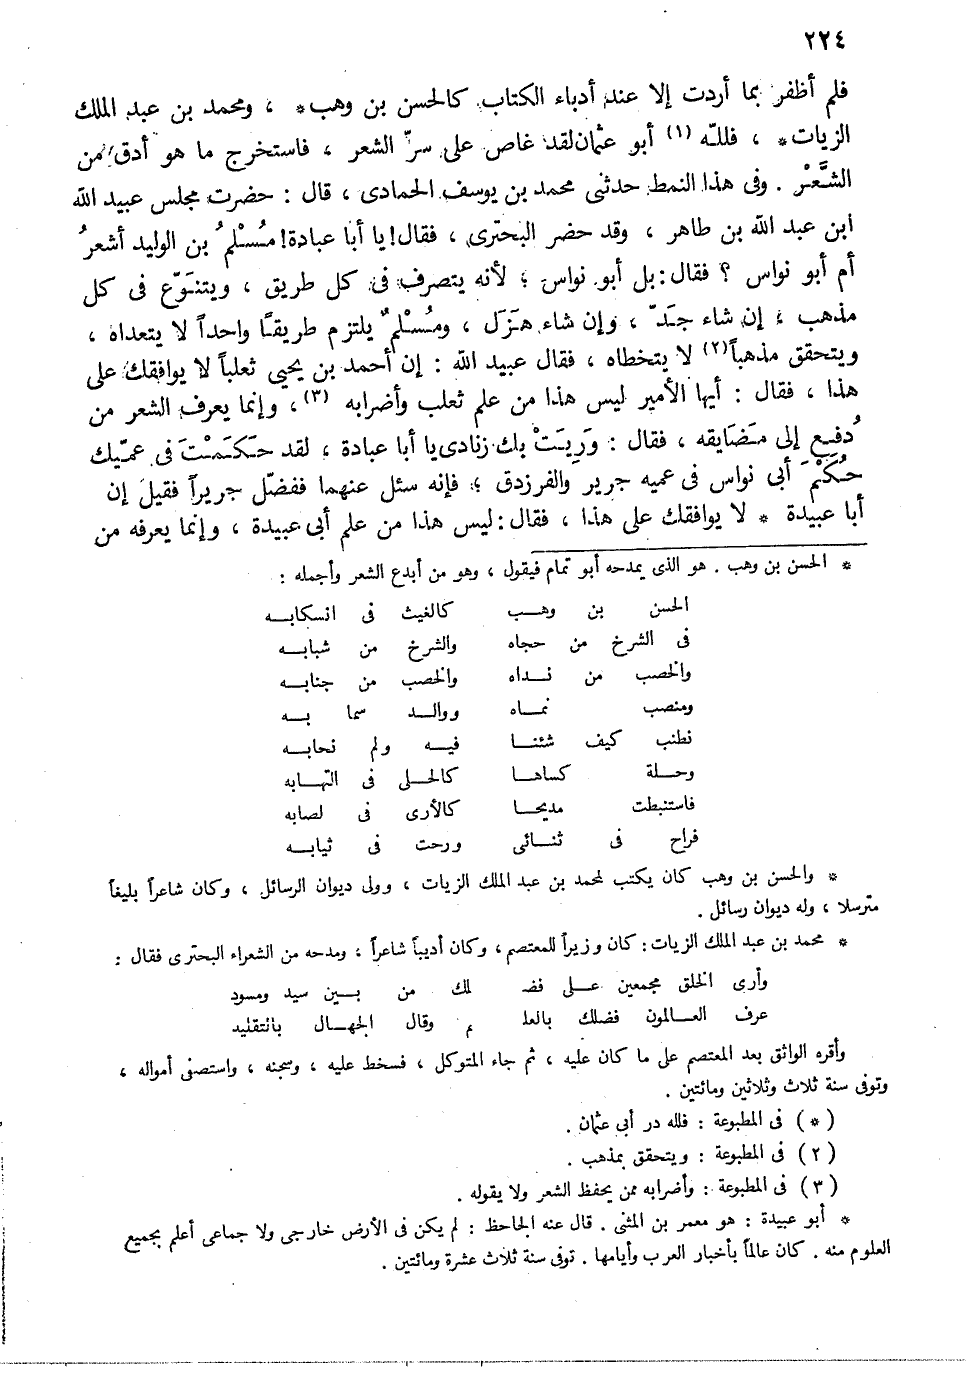 ٢٢٤
فلم أظفر بما أردت إلا عند أدباء الكتاب كالحسن بن وهب * ، ومحمد بن عبد الملك
الزيات * ، فلله (١) أبو عثمان لقد غاص على سرّ الشعر ، فاستخرج ما هو أدق من
الشَّعْر . وفى هذا النمط حدثنى محمد بن يوسف الحمادى ، قال : حضرت مجلس عبيد الله
ابن عبد الله بن طاهر ، وقد حضر البحترى ، فقال ! يا أبا عبادة ! مُسْلمُ بن الوليد أشعرُ
أم أبو نواس ؟ فقال : بل أبو نواس ؛ لأنه يتصرف فى كل طريق ، ويتنَوّع فى كل
مذهب ؛ إن شاء جَدّ ، وإن شاء هَزَل ، ومُسْلمٌ يلتزم طريقًا واحداً لا يتعداه ،
ويتحقق مذهباً (٢) لا يتخطاه ، فقال عبيد الله : إن أحمد بن يحيى ثعلباً لا يوافقك على
هذا ، فقال : أيها الأمير ليس هذا من علم ثعلب وأضرابه (٣) ، وإنما يعرف الشعر من
دُفع إلى مَضَايقه ، فقال : وَرِيَتْ بك زنادى يا أبا عبادة ، لقد حَكَمْتَ فى عمَّيك
حُكْمَ أبى نواس فى عميه جرير والفرزدق ؛ فإنه سئل عنهما ففضّل جريراً فقيلَ إن
أبا عبيدة * لا يوافقك على هذا ، فقال : ليس هذا من علم أبى عبيدة ، وإنما يعرفه من
* الحسن بن وهب . هو الذى يمدحه أبو تمام فيقول ، وهو من أبدع الشعر وأجمله :
الحسن بن وهـب كالغيث فى انسكابـه
فى الشرخ من حجاه والشرخ من شبابـه
والخصب من نـداه والخصب من جنابـه
ومنصب نمـاه ووالـد سما بـه
نطنب كيف شئنـا فيـه ولم نحابـه
وحـلة كساهـا كالحـلى فى التهـابه
فاستنبطت مديحـا كالأرى فى لصابه
فراح فى ثنـائى ورحت فى ثيابـه
* والحسن بن وهب كان يكتب لمحمد بن عبد الملك الزيات ، وولى ديوان الرسائل ، وكان شاعراً بليغاً
مترسلا ، وله ديوان رسائل .
* محمد بن عبد الملك الزيات : كان وزيراً للمعتصم ، وكان أديباً شاعراً ، ومدحه من الشعراء البحترى فقال :
وأرى الخلق مجمعين عـلى فضـ لك من بـين سيد ومسود
عرف العـالمون فضلك بالعلـ م وقال الجهـال بالتقليد
وأقره الواثق بعد المعتصم على ما كان عليه ، ثم جاء المتوكل ، فسخط عليه ، وسجنه ، واستصفى أمواله ،
وتوفى سنة ثلاث وثلاثين ومائتين .
( * ) فى المطبوعة : فلله در أبى عثمان .
( ٢ ) فى المطبوعة : ويتحقق بمذهب .
( ٣ ) فى المطبوعة : وأضرابه ممن يحفظ الشعر ولا يقوله .
* أبو عبيدة : هو معمر بن المثنى . قال عنه الجاحظ : لم يكن فى الأرض خارجى ولا جماعى أعلم بجميع
العلوم منه . كان عالماً بأخبار العرب وأيامها . توفى سنة ثلاث عشرة ومائتين .